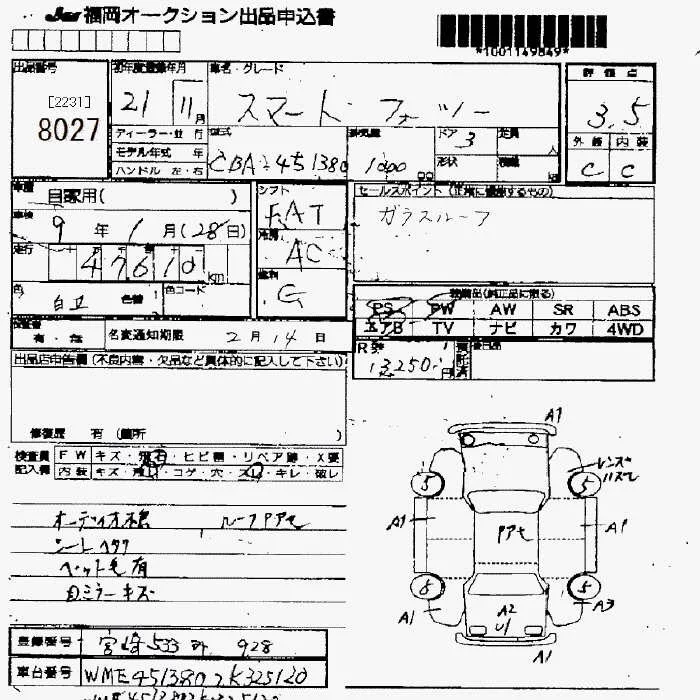 JU福岡オークション出品申込書
*1001149849*
出品番号
[2231]
8027
初年度登録年月
21 11月
車名・グレード
スマート フォーツー
評価点
3.5
外装 内装
C C
ディーラー・並行
モデル年式 年
ハンドル 左・右
型式
CBA-451380
排気量
1000
cc
ドア
3
形状
定員
人
積載
kg
車歴
自家用( )
シフト
FAT
車検
9年1月(28日)
冷房
AC
走行
47610 km
燃料
G
色
白
色替
色コード
セールスポイント(正常に作動するもの)
ガラスルーフ
装備品(純正品に限る)
PS PW AW SR ABS
エアB TV ナビ カワ 4WD
検査書
有・無
名変通知期限 2月14日
R券
13250円
預託済
後日品
出品店申告欄(不良内容・欠品など具体的に記入して下さい)
修復歴 有(箇所 )
検査員記入欄
FW キズ・飛石・ヒビ割・リペア跡・X要
内装 キズ・汚レ・コゲ・穴・スレ・キレ・破レ
オーディオ ルーフPアセ
シートヘタリ
ペット毛有
ミラーキズ
A1
レンズ
ハズレ
5 5
A1 Pアセ A1
8 5
A1 A2 A3
U1
A1
登録番号 宮崎533 928
車台番号 WME4513802K325120